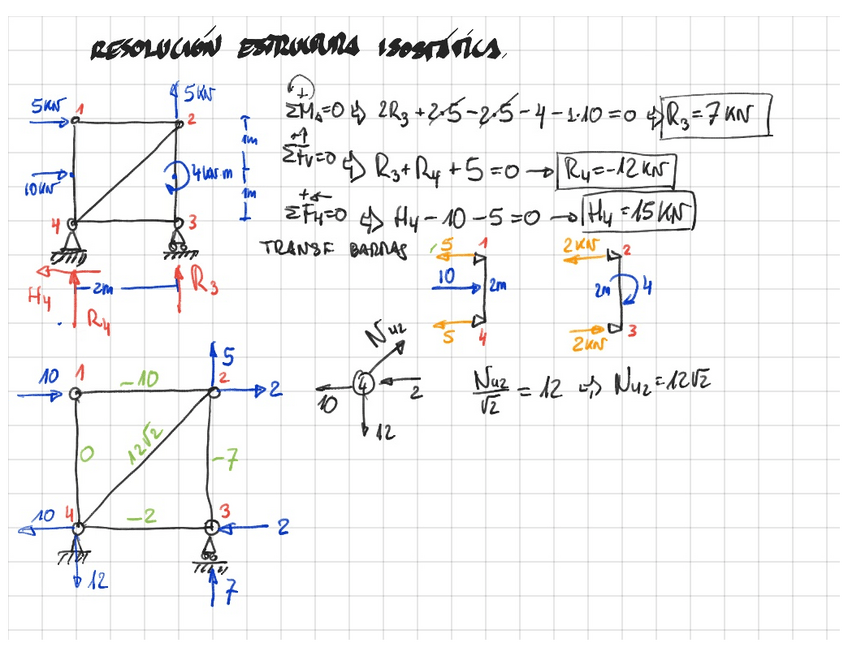 RESOLUCIÓN ESTRUCTURA ISOSTÁTICA.
5KN 1 5KN 2 1m
10KN 4KN·m 1m
4 3
H4 2m R3
R4
+
ΣM4=0 ⇒ 2R3+2·5-2·5-4-1·10=0 ⇒ R3=7KN
ΣFV=0 ⇒ R3+R4+5=0 → R4=-12KN
ΣFH=0 ⇒ H4-10-5=0 → H4=15KN
TRANSF BARRAS
5 1 2KN 2
10 2m 2m 4
5 4 2KN 3
10 1 -10 5 2 2
0 12√2 -7
10 4 -2 3 2
12 7
N42
10 4 2
12
N42/√2 = 12 ⇒ N42=12√2